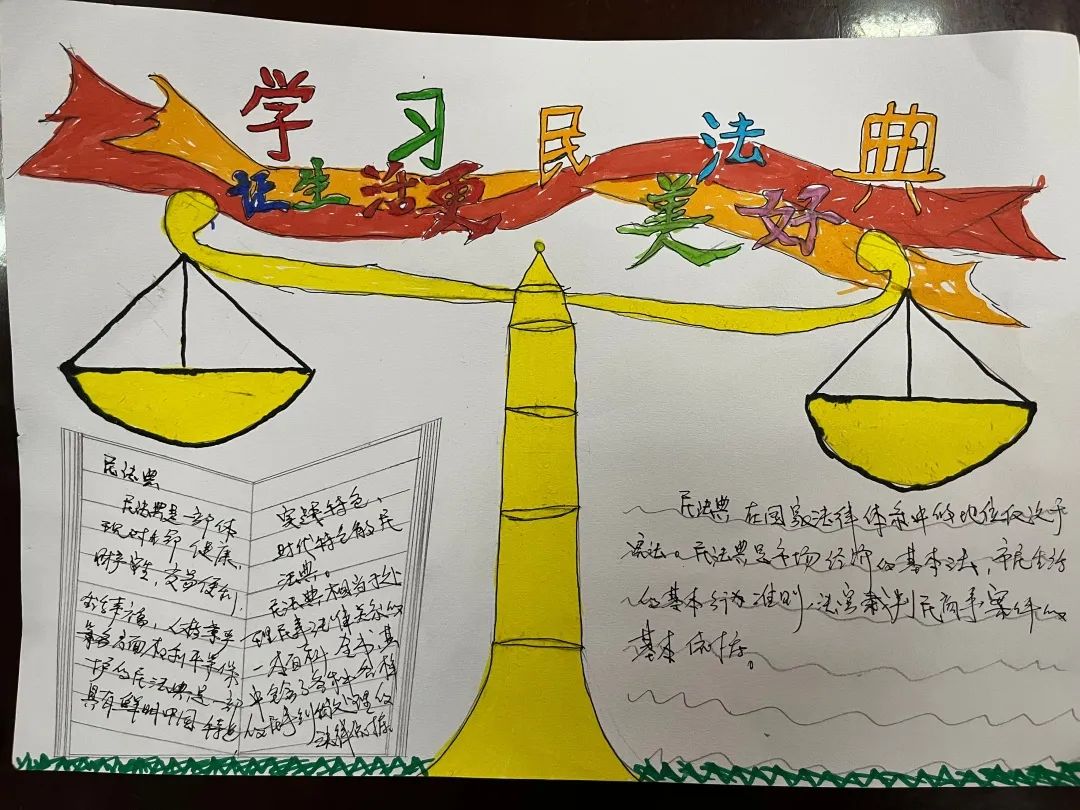 学习民法典
让生活更美好
民法典
民法典是一部体
现对生命健康,
财产安全,交易便利,
生活幸福,人格尊严
等各方面权利平等保
护的民法典是一部
具有鲜明中国特色,
实践特色、
时代特色的民
法典。
民法典相当于处
理民事法律关系的
一本百科全书,其
中
的
法律依据。
民法典在国家法律体系中的地位仅次于
宪法。民法典是市场经济的基本法,市民生活
的基本行为准则,法官裁判民商事案件的
基本依据。